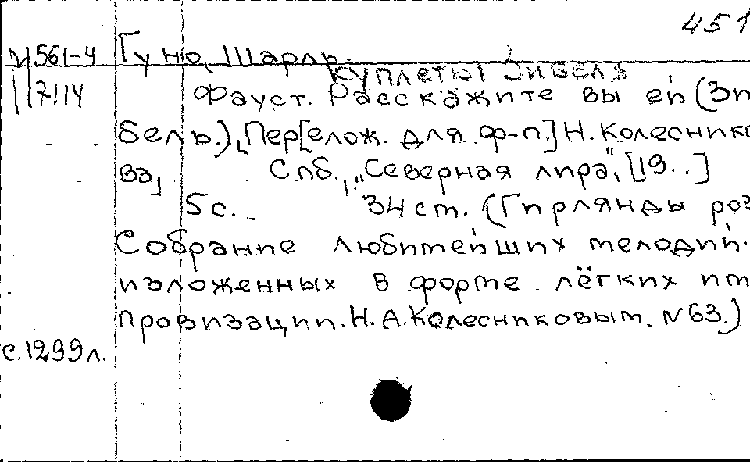 451
И561-4 Гуно, Шарль.
Куплеты Зибеля
7114 Фауст. Расскажите вы ей (Зи
бель.), Пер[елож. для ф-п.] Н. Колеснико
ва, Спб., "Северная лира", [19..]
5с. 34 ст. (Гирлянды роз
Собрание любитейших мелодий.
изложенных в форме лёгких им
провизации. Н. А. Колесниковым. N63.)
с. 1299л.